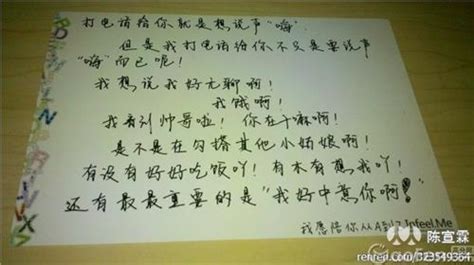 打电话给你就是想说声“嗨”
但是我打电话给你不只是要说声
“嗨”而已呢！
我想说我好无聊啊！
我饿啊！
我看到帅哥啦！你在干嘛啊！
是不是在勾搭其他小姑娘啊！
有没有好好吃饭吖！有木有想我吖！
还有最最重要的是“我好中意你啊！”
我愿陪你从A到Z Infeel.Me
陈宣霖
renren.com/323519364